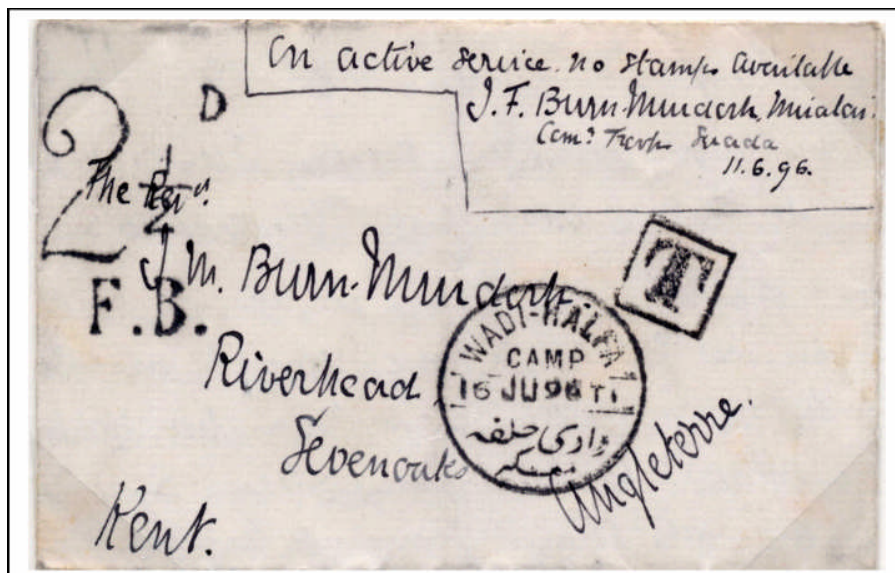 On active service. no stamps available
J. F. Burn-Murdoch,
Com.g Troops
11.6.96.
2 1/2 D
F.B.
The Rev.d
J. M. Burn-Murdoch.
Riverhead
Sevenoaks
Kent.
Angleterre.
T
WADI-HALFA
CAMP
16 JU 96 T1
وادى حلفه
معسكر